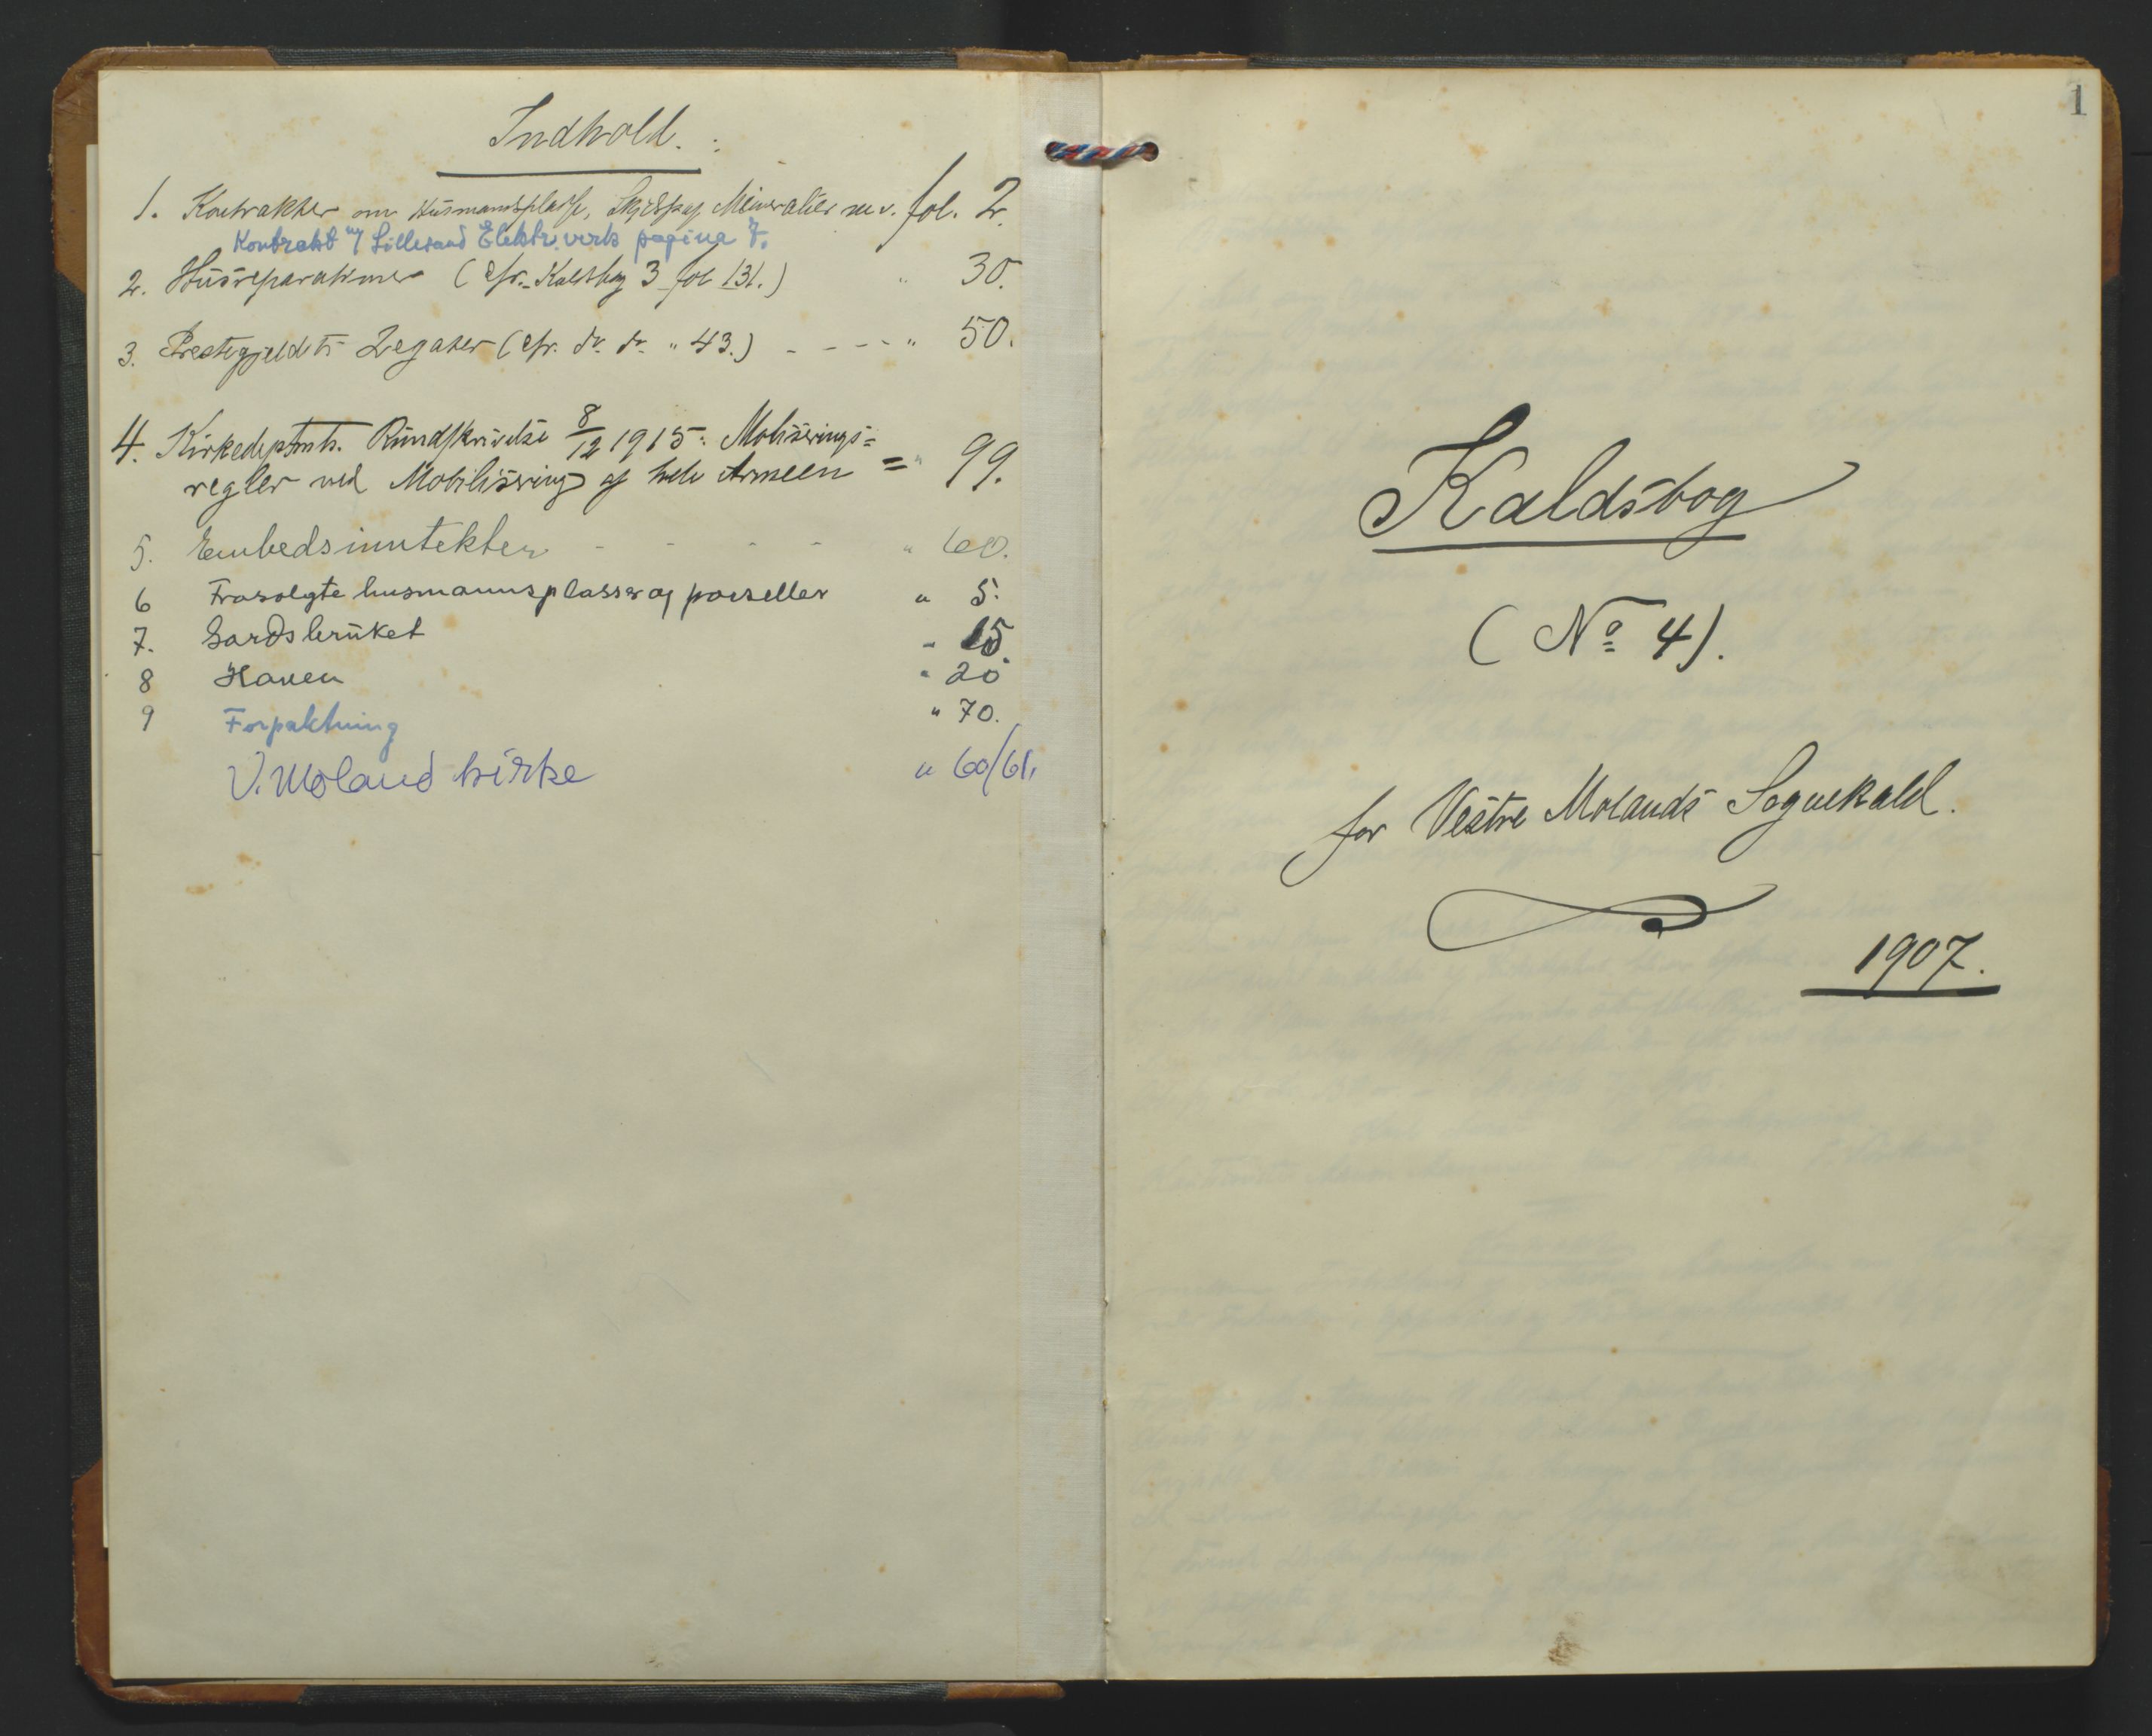 Indhold.
1. Kontrakter om Husmandsplasse, Mineralier m.v. fol. 2.
Kontrakt m/ Lillesand Elektr.verk pagina 7.
2. Husreparationer (cfr. Kaldsbog 3 fol 131.) " 30.
3. Prestegjeldets Legater (cfr. do. do. " 43.) - - - - " 50.
4. Kirkedeptmts. Rundskrivelse 8/12 1915: Mobiliserings=
regler ved Mobilisering af hele Armeen = " 99.
5. Embedsinntekter - - - - " 60.
6 Frasolgte husmannsplasser og parseller " 5.
7. Gardsbruket " 15
8 Haven " 20
9 Forpaktning " 70.
V. Moland kirke " 60/61.
1
Kaldsbog
(No 4).
for Vestre Molands Sognekald.
1907.